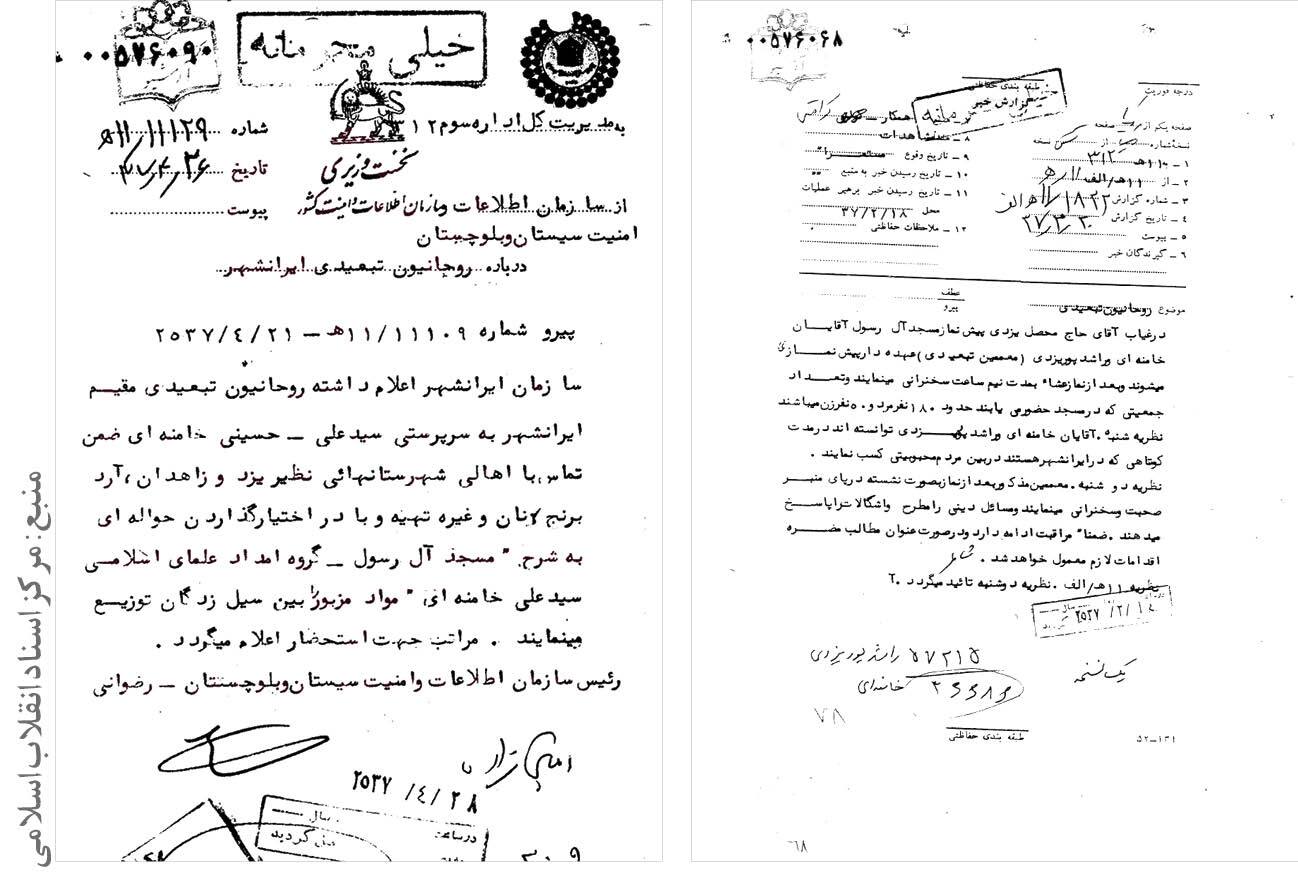 منبع: مرکز اسناد انقلاب اسلامی
۰۰۵۷۶۰۹۰
خیلی محرمانه
به مدیریت کل اداره سوم ۳۱۲
شماره ۱۱/۱۱۱۲۹هـ
نخست وزیری
تاریخ ۳۷/۴/۲۶
از سازمان اطلاعات و
سازمان اطلاعات و امنیت کشور
پیوست
امنیت سیستان وبلوچستان
درباره روحانیون تبعیدی ایرانشهر
پیرو شماره ۱۱/۱۱۱۰۹هـ – ۲۵۳۷/۴/۲۱
سازمان ایرانشهر اعلام داشته روحانیون تبعیدی مقیم
ایرانشهر به سرپرستی سیدعلی – حسینی خامنه ای ضمن
تماس با اهالی شهرستانهائی نظیر یزد و زاهدان ،آرد
برنج ،نان و غیره تهیه و با در اختیارگذاردن حواله ای
به شرح " مسجد آل رسول – گروه امداد علمای اسلامی
سیدعلی خامنه ای " مواد مزبور را بین سیل زدگان توزیع
مینمایند . مراتب جهت استحضار اعلام میگردد .
رئیس سازمان اطلاعات وامنیت سیستان وبلوچستان – رضوانی
۲۵۳۷ /۴/ ۲۸
سال
در ساعت
گردید
۰۰۵۷۶۰۶۸
درجه فوریت
طبقه بندی حفاظتی
گزارش خبر
محرمانه
صفحه یکم از صفحه
نسخه شماره از نسخه
۱ – به ۳۱۲
۲ – از ۱۱هـ/الف
۳ – شماره گزارش ۱۸۲۲/۱۱هـ الف
۴ – تاریخ گزارش ۳۷/۳/۲۰
۵ – پیوست
۶ – گیرندگان خبر
همکار
۸ – مشاهدات
۹ – تاریخ وقوع مستمرا"
۱۰ – تاریخ رسیدن خبر به منبع ""
۱۱ – تاریخ رسیدن خبر برهبر عملیات
محل ۳۷/۲/۱۸
۱۲ – ملاحظات حفاظتی
عطف
پیرو
موضوع روحانیون تبعیدی
درغیاب آقای حاج محصل یزدی پیش نماز مسجدآل رسول آقایان
خامنه ای وراشد پوریزدی (معممین تبعیدی) عهده دارپیش نمازی
میشوند وبعد ازنمازعشاء بمدت نیم ساعت سخنرانی مینمایند وتعداد
جمعیتی که درمسجد حضورمی یابند حدود ۱۸۰نفرمرد و ۵۰نفرزن میباشند
نظریه شنبه .آقایان خامنه ای وراشد پوریزدی توانسته اند درمدت
کوتاهی که درایرانشهرهستند دربین مردم محبوبیتی کسب نمایند .
نظریه دو شنبه .معممین مذکوربعد ازنمازبصورت نشسته درپای منبر
صحبت وسخنرانی مینمایند ومسائل دینی رامطرح واشکالات راپاسخ
میدهند .ضمنا" مراقبت ادامه دارد ودرصورت عنوان مطالب مضره
اقدامات لازم معمول خواهد شد .
نظریه ۱۱هـ/الف .نظریه دوشنبه تائید میگردد .
راشد پوریزدی ۵۷۲۱۵
یک نسخه
خامنه ای
۷۸
طبقه بندی حفاظتی
۵۲–۱۳۱
۶۸